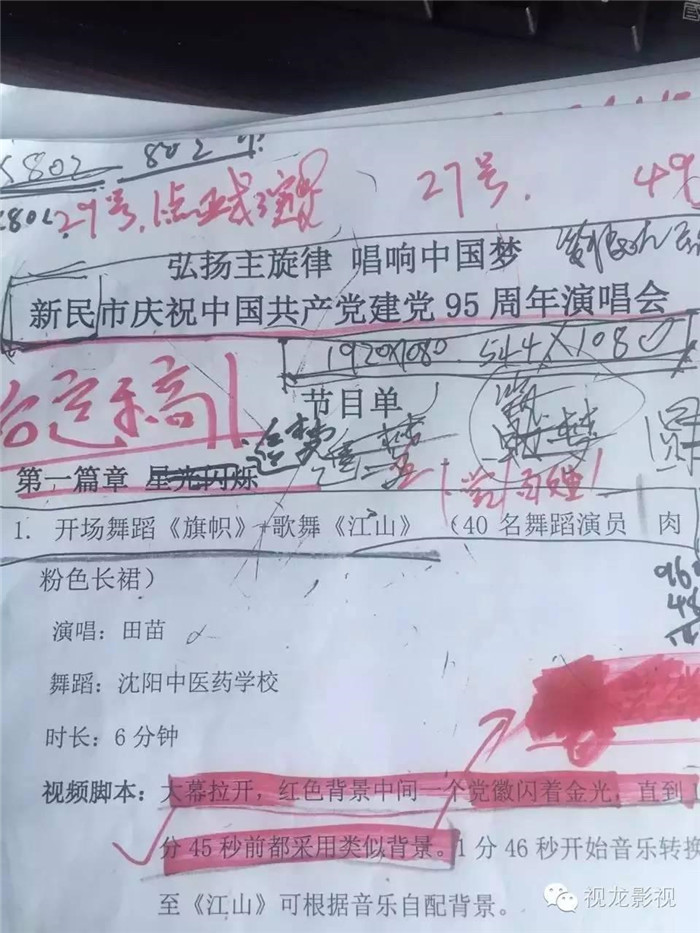 S802 802
802
29号 27号. 49
弘扬主旋律 唱响中国梦
新民市庆祝中国共产党建党 95 周年演唱会
1920X1080 544X1080
节目单
第一篇章 星光闪烁 追梦
1. 开场舞蹈《旗帜》+歌舞《江山》 （40 名舞蹈演员 肉
粉色长裙）
演唱：田苗
舞蹈：沈阳中医药学校
时长：6 分钟
视频脚本：大幕拉开，红色背景中间一个党徽闪着金光，直到 1
分 45 秒前都采用类似背景。1 分 46 秒开始音乐转换
至《江山》可根据音乐自配背景。
视龙影视